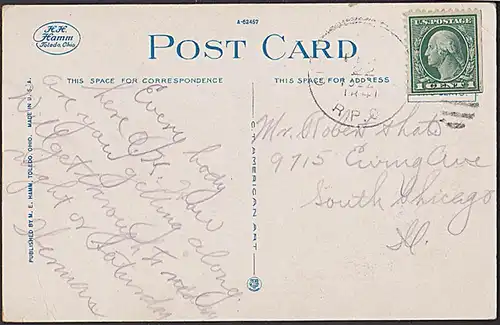 H.H.
Hamm
Toledo, Ohio.
A-62457
POST CARD
THIS SPACE FOR CORRESPONDENCE
THIS SPACE FOR ADDRESS
U.S. POSTAGE
1 CENT 1
R.P.O.
PUBLISHED BY M. E. HAMM, TOLEDO, OHIO. MADE IN U.S.A.
AMERICAN ART
Every body
here O.K. How
are you getting along
will get through
night or Saturday
Herman
Mr. Robert
9715 Ewing Ave
South Chicago
Ill.